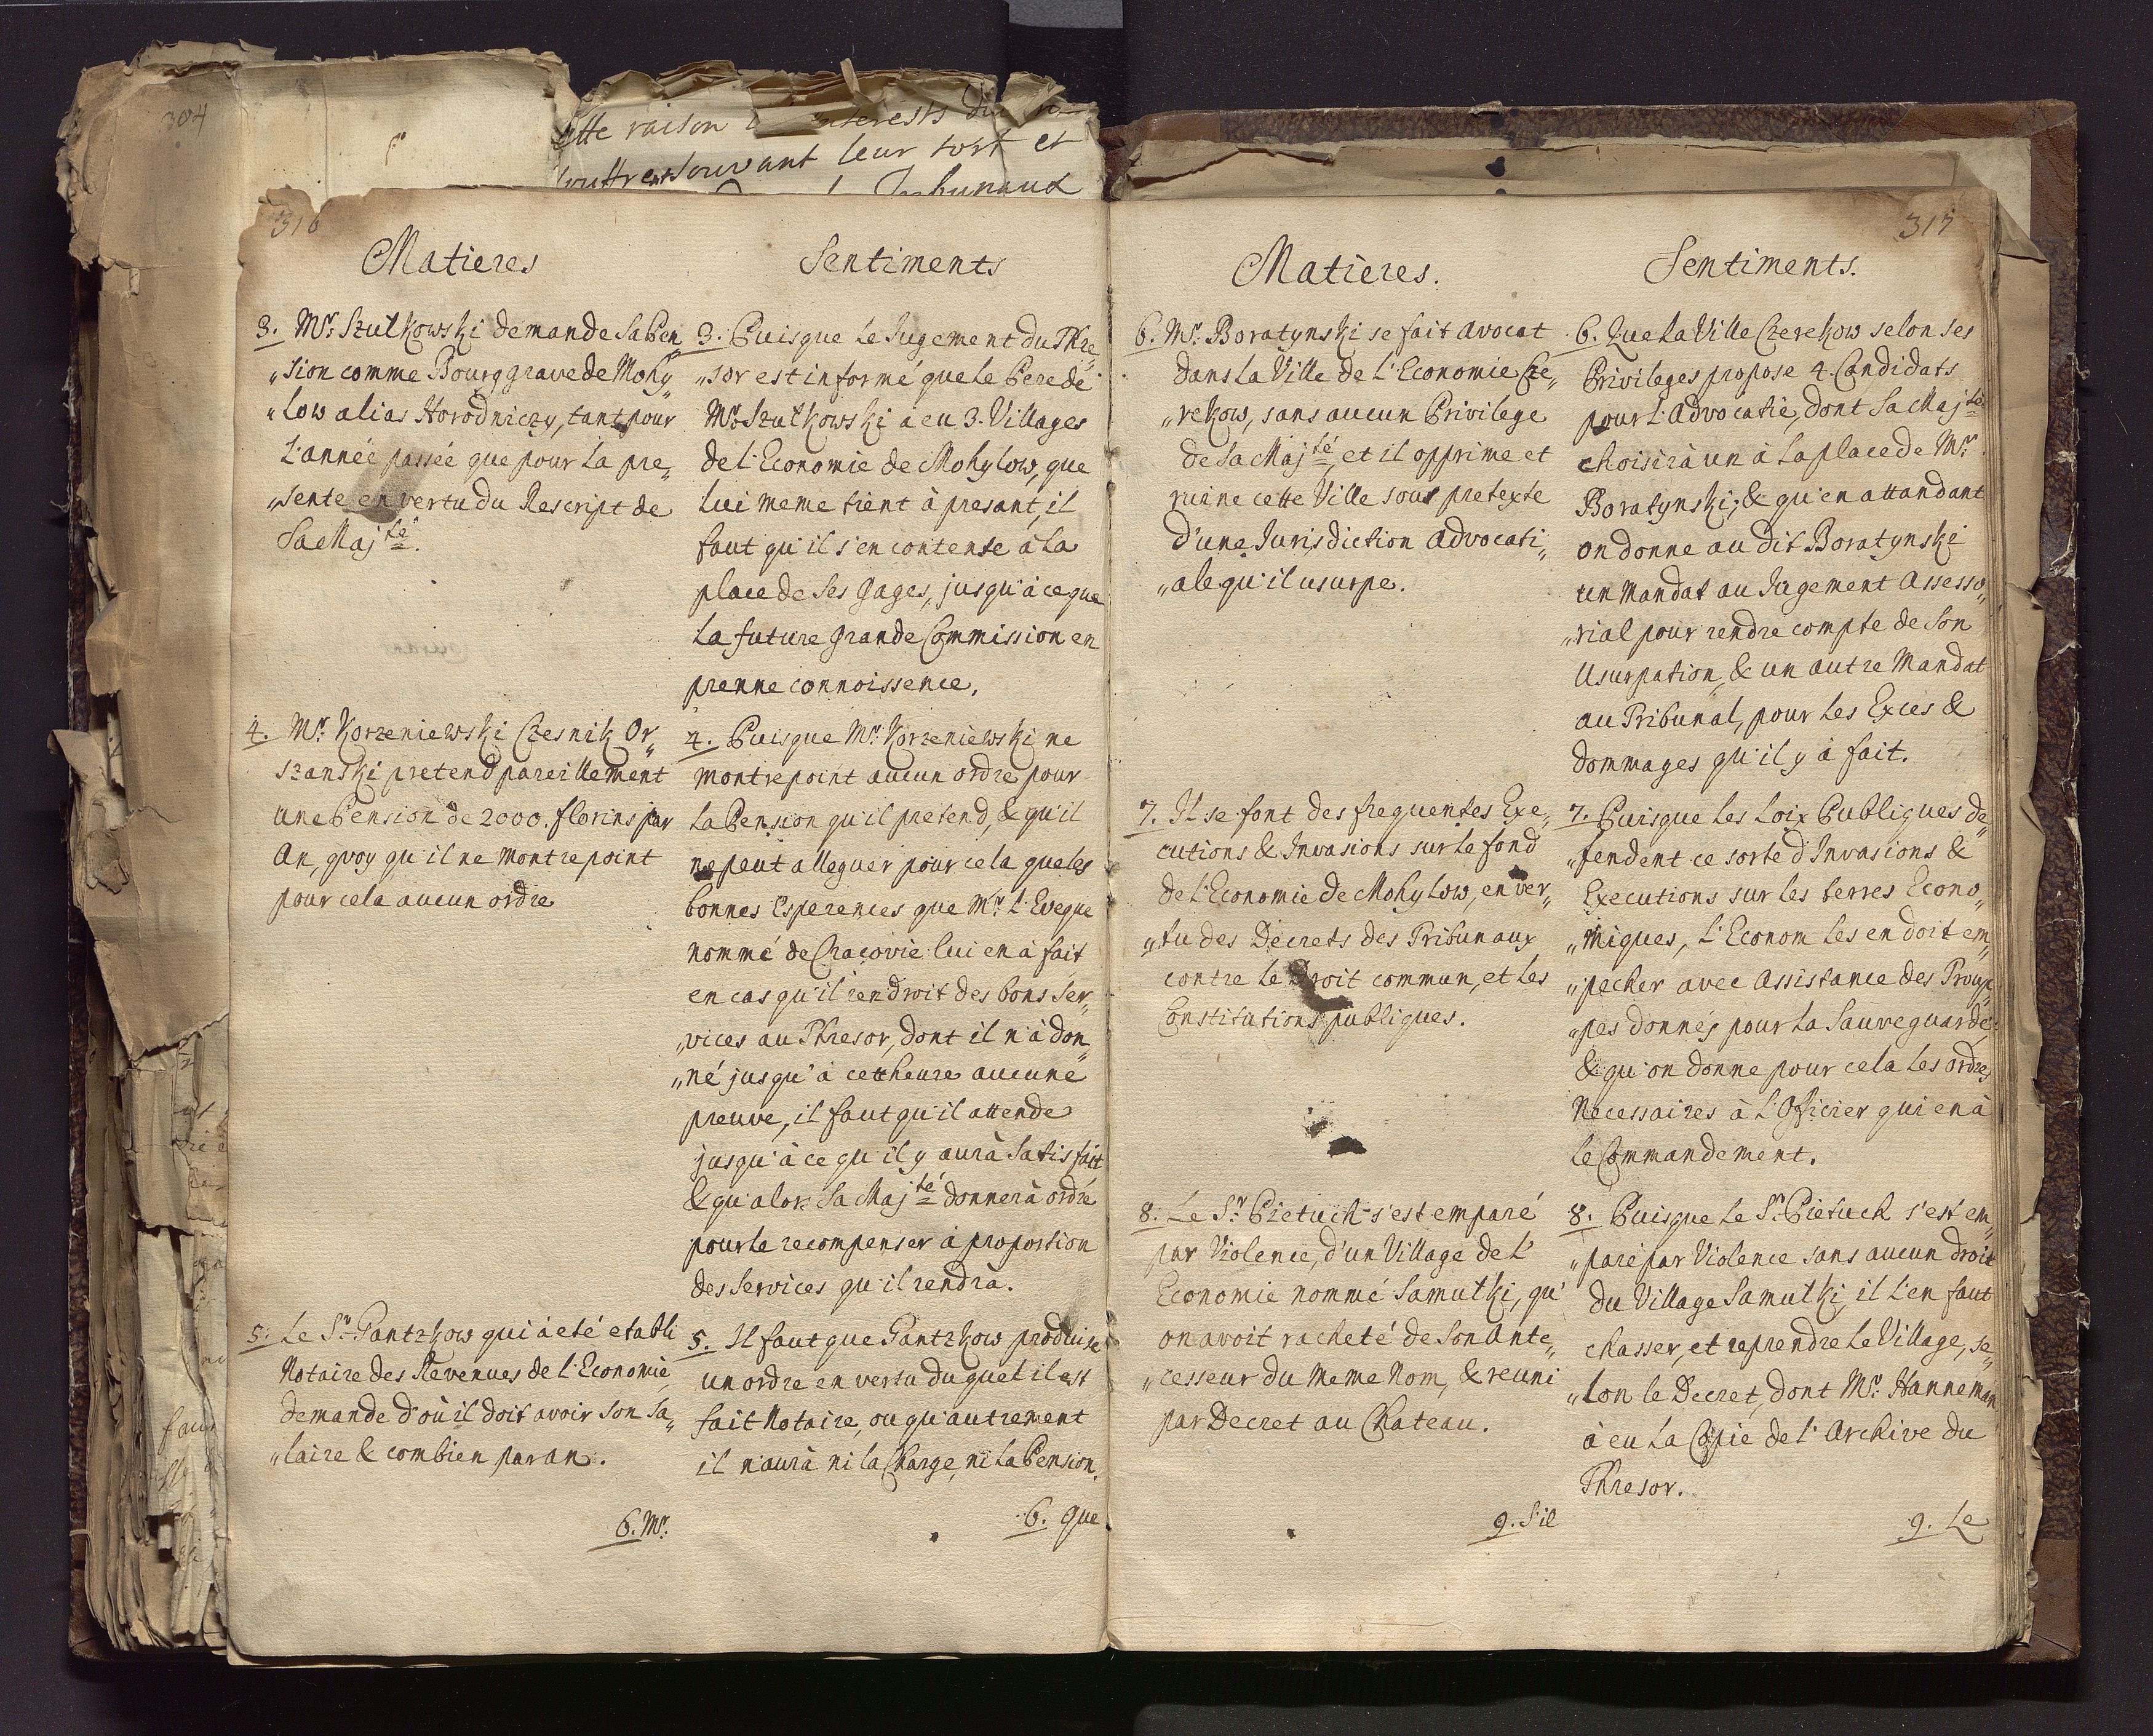 304
cette raison
souffrent souvant leur tort et
Tribunaux
316
Matieres
3. Mr. Szulkowski demande sa Pen„
„sion comme Bourggrave de Mohy„
„low alias Horodniczy, tant pour
l'année passée que pour la pre„
„sente en vertu du Rescript de
Sa Majté.
4. Mr. Korzeniewski Czesnik Or„
szanski pretend pareillement
une Pension de 2000. florins par
An, quoy qu'il ne montre point
pour cela aucun ordre
5. Le Sr. Pantzkow qui à eté etabli
Notaire des Revenues de l'Economie,
demande d'où il doit avoir son sa„
„laire & combien par an.
6. Mr.
Sentiments
3. Puisque le Jugement du Thre„
„sor est informé que le Pere de
Mr. Szulkowski à eu 3. Villages
de l'Economie de Mohylow, que
lui meme tient à presant, il
faut qu'il s'en contente à la
place de ses Gages, jusqu'à ce que
la future grande Commission en
prenne connoissence.
4. Puisque Mr. Korzeniewski ne
montre point aucun ordre pour
la Pension qu'il pretend, & qu'il
ne peut alleguer pour cela que les
bonnes Esperences que Mr. l'Eveque
nommé de Cracovie lui en à fait
en cas qu'il rendroit des bons ser„
„vices au Thresor, dont il n'à don„
„né jusqu'à cettheure aucune
preuve, il faut qu'il attende
jusqu'à ce qu'il y aurà satisfait
& qu'alors Sa Majté donnerà ordre
pour le recompenser à proportion
des services qu'il rendrà.
5. Il faut que Pantzkow produise
un ordre en vertu du quel il est
fait Notaire, ou qu'autrement
il n'aurà ni la Charge, ni la Pension.
6. Que
317
Matieres.
6. Mr. Boratynski se fait avocat
dans la Ville de l'Economie Cze„
„rekow, sans aucun Privilege
de Sa Majté, et il opprime et
ruine cette Ville sous pretexte
d'une Jurisdiction Advocati„
„ale qu'il usurpe.
7. Il se font des frequentes Exe„
cutions & Invasions sur le fond
de l'Economie de Mohylow, en ver„
„tu des Decrets des Tribunaux
contre le Droit commun, et les
Constitutions publiques.
8. Le Sr. Pietuch s'est emparé
par Violence, d'un Village de l'
Economie nommé Samulki, qu'
on avoit racheté de son Ante„
„cesseur du meme Nom, & reuni
par Decret au Chateau.
9. S'il
Sentiments.
6. Que la Ville Czerekow selon ses
Privileges propose 4. Candidats
pour l'Advocatie, dont Sa Majté
choisirà un à la place de Mr.
Boratynski; & qu'en attandant
on donne au dit Boratynski
un Mandat au Jugement Assesso„
„rial pour rendre compte de son
Usurpation, & un autre Mandat
au Tribunal, pour les Exces &
dommages qu'il y à fait.
7. Puisque les Loix Publiques de„
„fendent ce sorte d'Invasions &
Executions sur les terres Econo„
„miques, l'Econom les en doit em„
„pecher avec Assistance des Troup„
„pes donnés pour la Sauveguarde,
& qu'on donne pour cela les ordres
Necessaires à l'Officier qui en à
le Commandement.
8. Puisque le Sr. Pietuch s'est em„
„paré par Violence sans aucun droit
du Village Samulki, il l'en faut
chasser, et reprendre le Village, se„
„lon le Decret, dont Mr. Hanneman
à eu la Copie de l'Archive du
Thresor.
9. Le